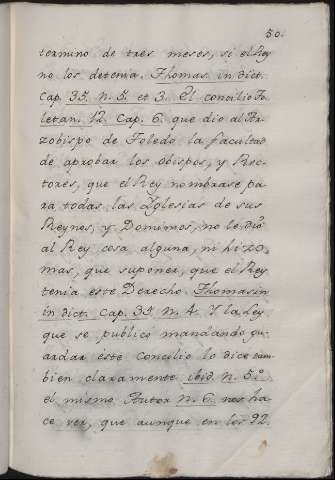 50.
termino de tres meses, si el Rey
no los detenia. Thomas. in dict.
Cap. 35. n. 5. et 3. El concilio To
letan. 12. Cap. 6. que dio al Ar
zobispo de Toledo la facultad
de aprobar los obispos, y Rec-
tores, que el Rey nombrase pa
ra todas las Yglesias de sus
Reynos, y Dominios, no le dio
al Rey cosa alguna, ni hizo
mas, que suponer, que el Rey
tenia este Derecho. Thomasin
in dict. Cap. 35 n. 4. Y la Ley
que se publicò mandando gu-
ardar este Concilio lo dice tam
bien claramente ibid. n. 5.º
el mismo Autor n. 6. nos ha
ce ver, que aunque en los 92.